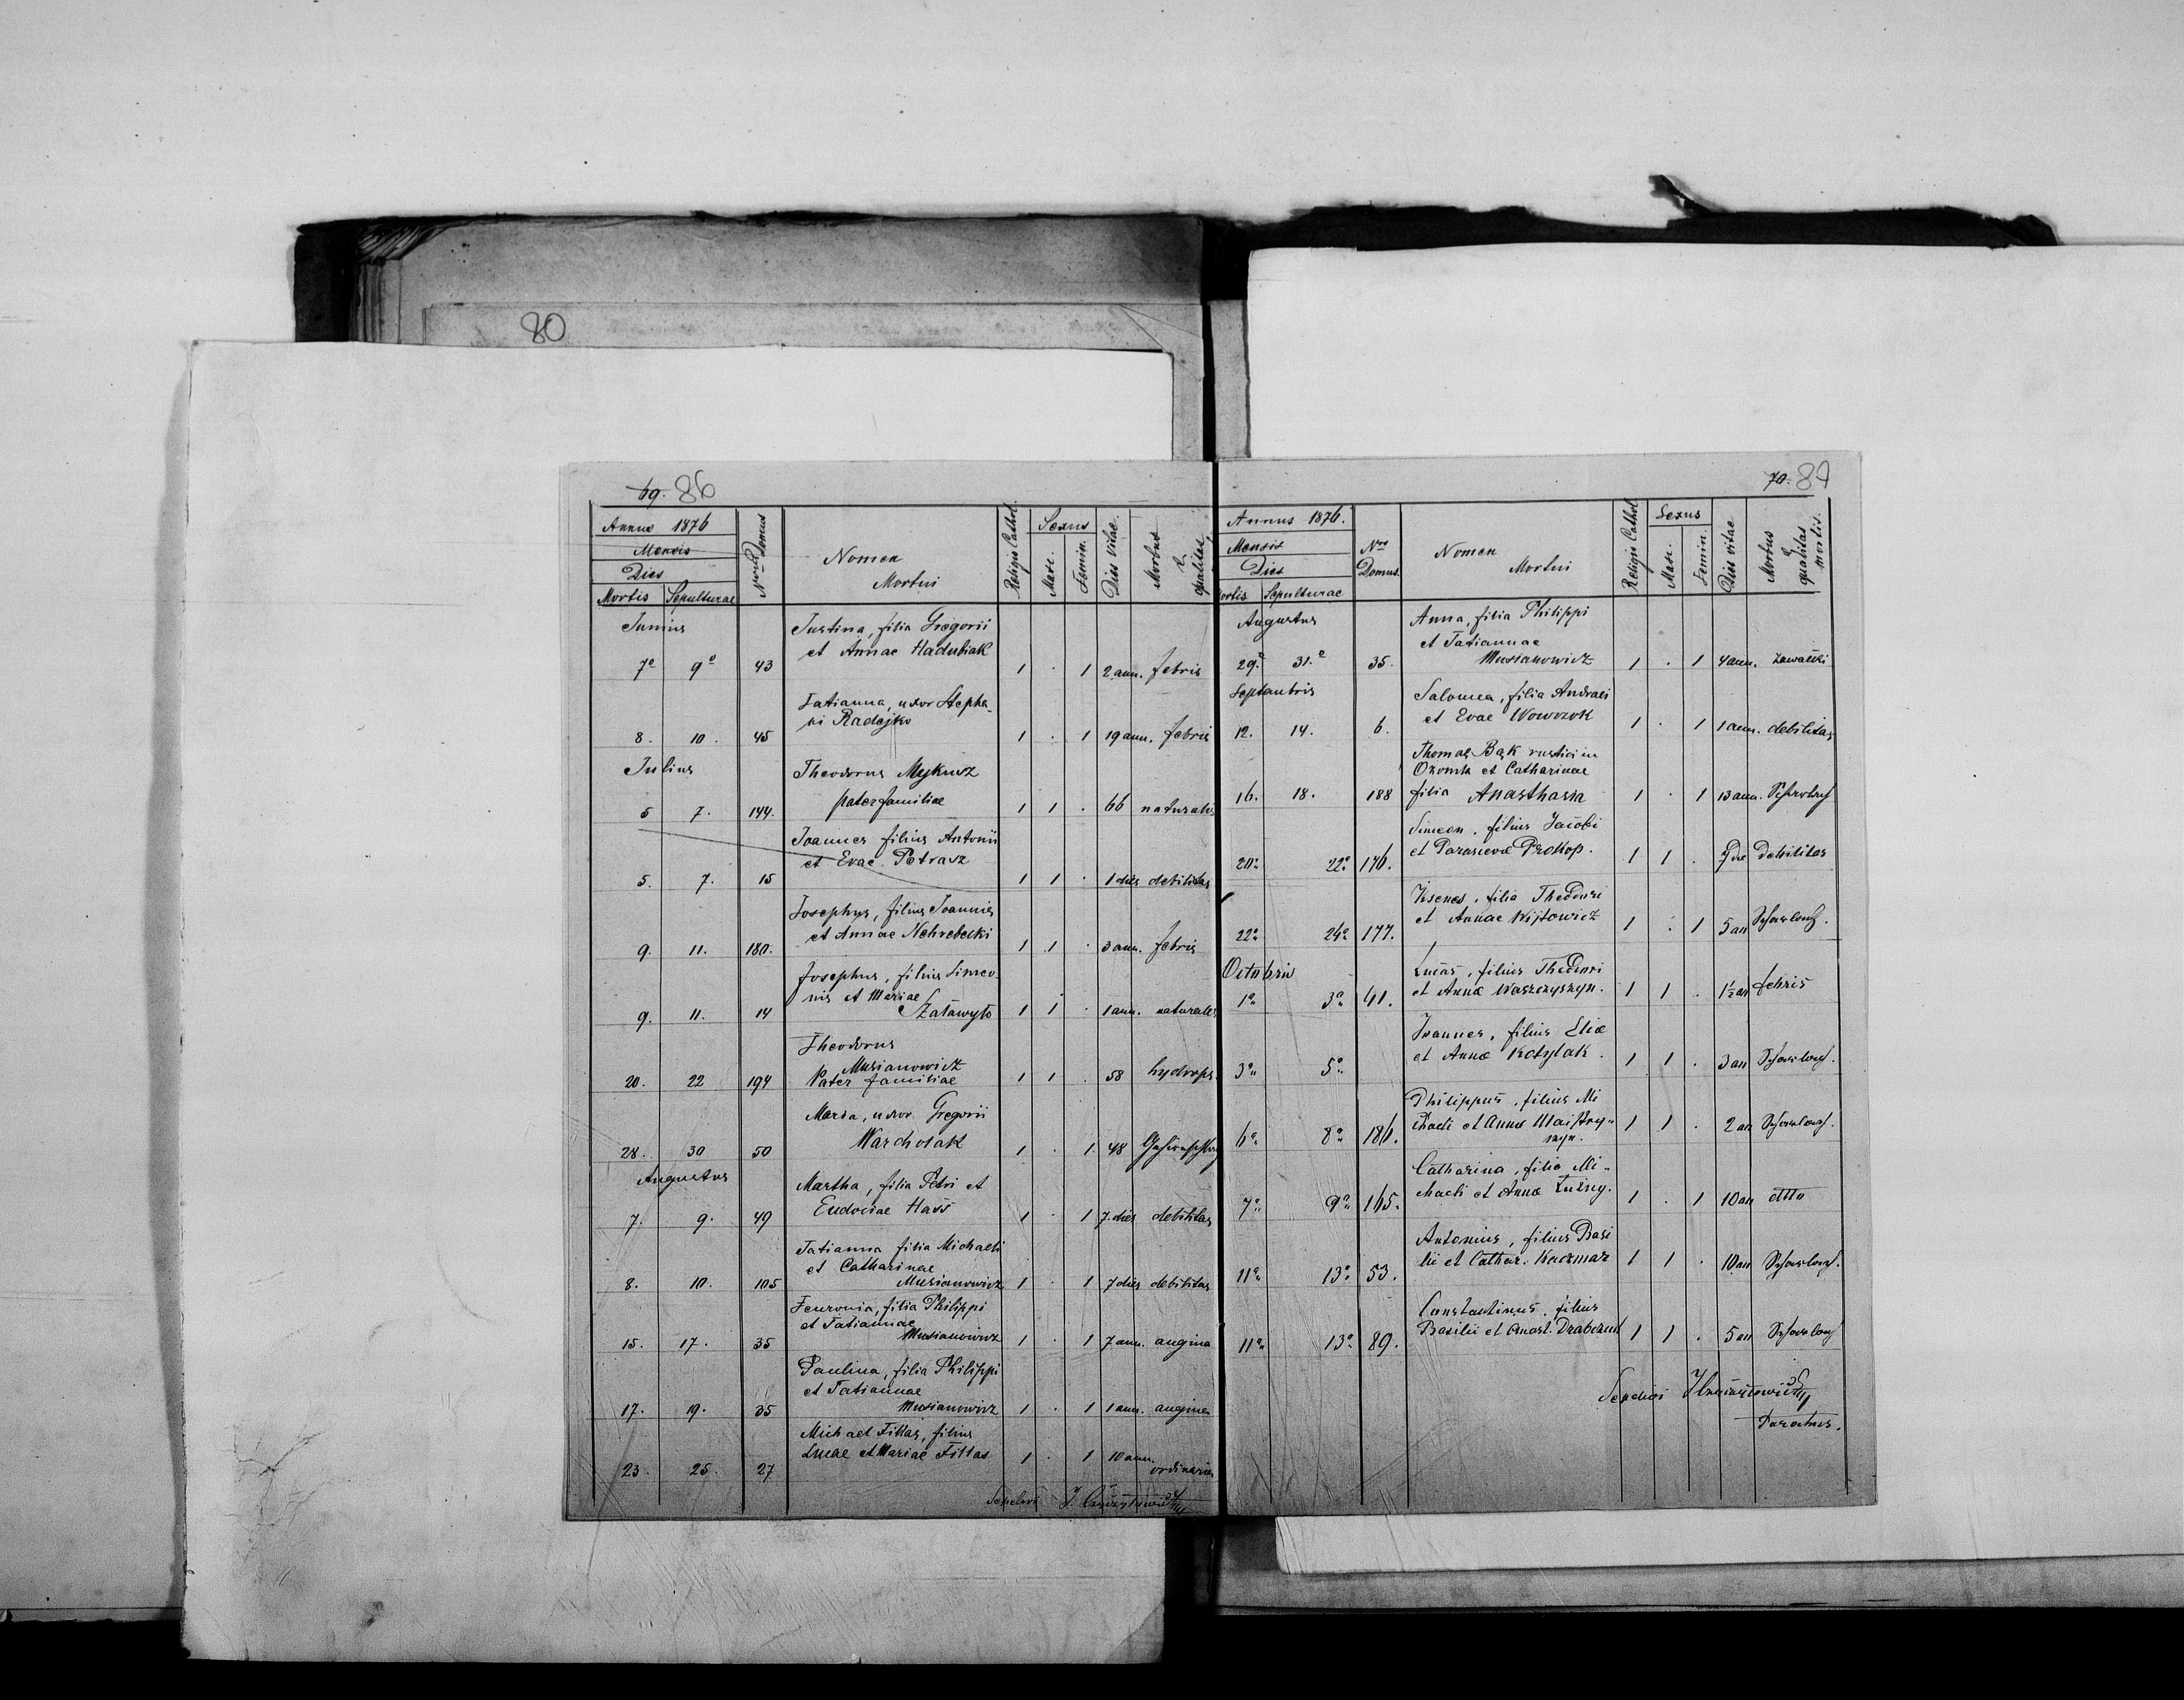 80
69. 86
Annus 1876
Mensis
Dies
Mortis Sepulturae
Nrus Domus
Nomen
Mortui
Religio Cathol.
Sexus
Masc.
Femin.
Dies vitae.
Morbus
&
qualitas
Junius
Justina, filia Gregorii
et Annae Hadubiak
7a 9a 43 1 . 1 2 ann. febris
Tatianna, uxor Stepha-
ni Radejko
8. 10. 45 1 . 1 19 ann. febris
Julius
Theodorus Mykusz
pater familiae
5 7. 144. 1 1 . 66 naturalis
Joannes filius Antonii
et Evae Petrasz
5. 7. 15 1 1 . 1 dies debilitas
Josephus, filius Joannis
et Annae Nehrebecki
9. 11. 180. 1 1 . 3 ann. febris
Josephus, filius Simeo-
nis et Mariae
Szatawyło
9. 11. 14 1 1 . 1 ann. naturalis
Theodorus
Musianowicz
Pater familiae
20. 22 194 1 1 . 58 hydrops.
Maria, uxor Gregorii
Warcholak
28. 30 50 1 . 1. 48
Augustus
Martha, filia Petri et
Eudociae Hass
7. 9. 49 1 . 1 7. dies debilitas
Tatianna filia Michaeli
et Catharinae
Musianowicz
8. 10. 105 1 . 1 7 dies debilitas
Feuronia, filia Philippi
et Tatiannae
Musianowicz
15. 17. 35 1 . 1 7 ann. angina
Paulina, filia Philippi
et Tatiannae
Musianowicz
17. 19. 35 1 . 1 1 ann. angina
Michael Fittas, filius
Lucae et Mariae Fittas
23. 25. 27 1 . 1 10 ann. ordinaria
70. 87
Annus 1876.
Mensis
Dies
Mortis Sepulturae
Nrus
Domus
Nomen
Mortui
Religio Cathol
Sexus
Masc.
Femin.
Dies vitae
Morbus
&
qualitas
mortis.
Augustus
Anna, filia Philippi
et Tatiannae
Musianowicz
29.a 31.a 35. 1 . 1 4 ann.
Septembris
Salomea, filia Andreae
et Evae Nowozok
12. 14. 6. 1 . 1 1 ann. debilitas
Thomae Bąk rustici in
et Catharinae
filia Anasthasia
16. 18. 188 1 . 1 13 ann.
Simeon, filius Jacobi
et Parasceva Prokop.
20a 22a 176. 1 1 . debilitas
Xsenes, filia Theodori
et Annae Wijtowicz
22a 24a 177. 1 . 1 5 an
Octobris
Lucas, filius Theodori
et Anna Waszczyszyn.
1a 3a 41. 1 1 . 1½ an febris
Joannes, filius Eliae
et Anna Kotylak.
3a 5a 1 1 . 3 an
Philippus, filius Mi
chaeli et Anna Maistry-
szyn.
6a 8a 186. 1 1 . 2 an
Catharina, filia Mi-
chaeli et Anna
7a 9a 165. 1 . 1 10 an dtto
Antonius, filius Basi
lii et Cathar. Kaczmar
11a 13a 53. 1 1 . 10 an
Constantinus, filius
Basilii et Anast.
11a 13a 89. 1 1 . 5 an
Parochus.